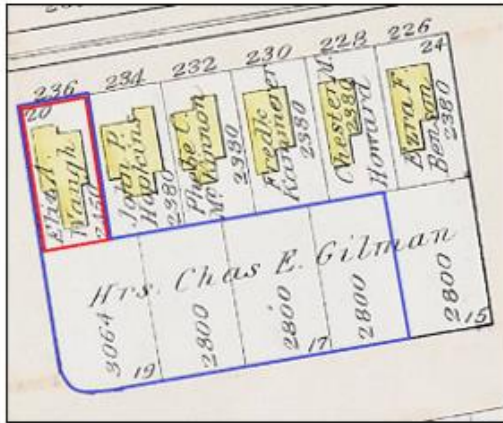 236
234
232
230
228
226
20
24
Eliz. A.
Waugh
2450
John P.
Hopkins
2380
Phebe C.
McKinnon
2380
Fredk
2380
Chester M.
Howard
2380
Ezra F.
Benson
2380
Hrs. Chas E. Gilman
3064
19
2800
2800
17
2800
2800
15